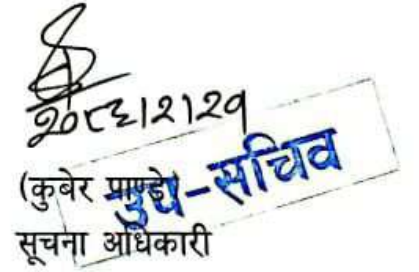 २०८३।२।२१
(कुबेर पाण्डे)
उप-सचिव
सूचना अधिकारी